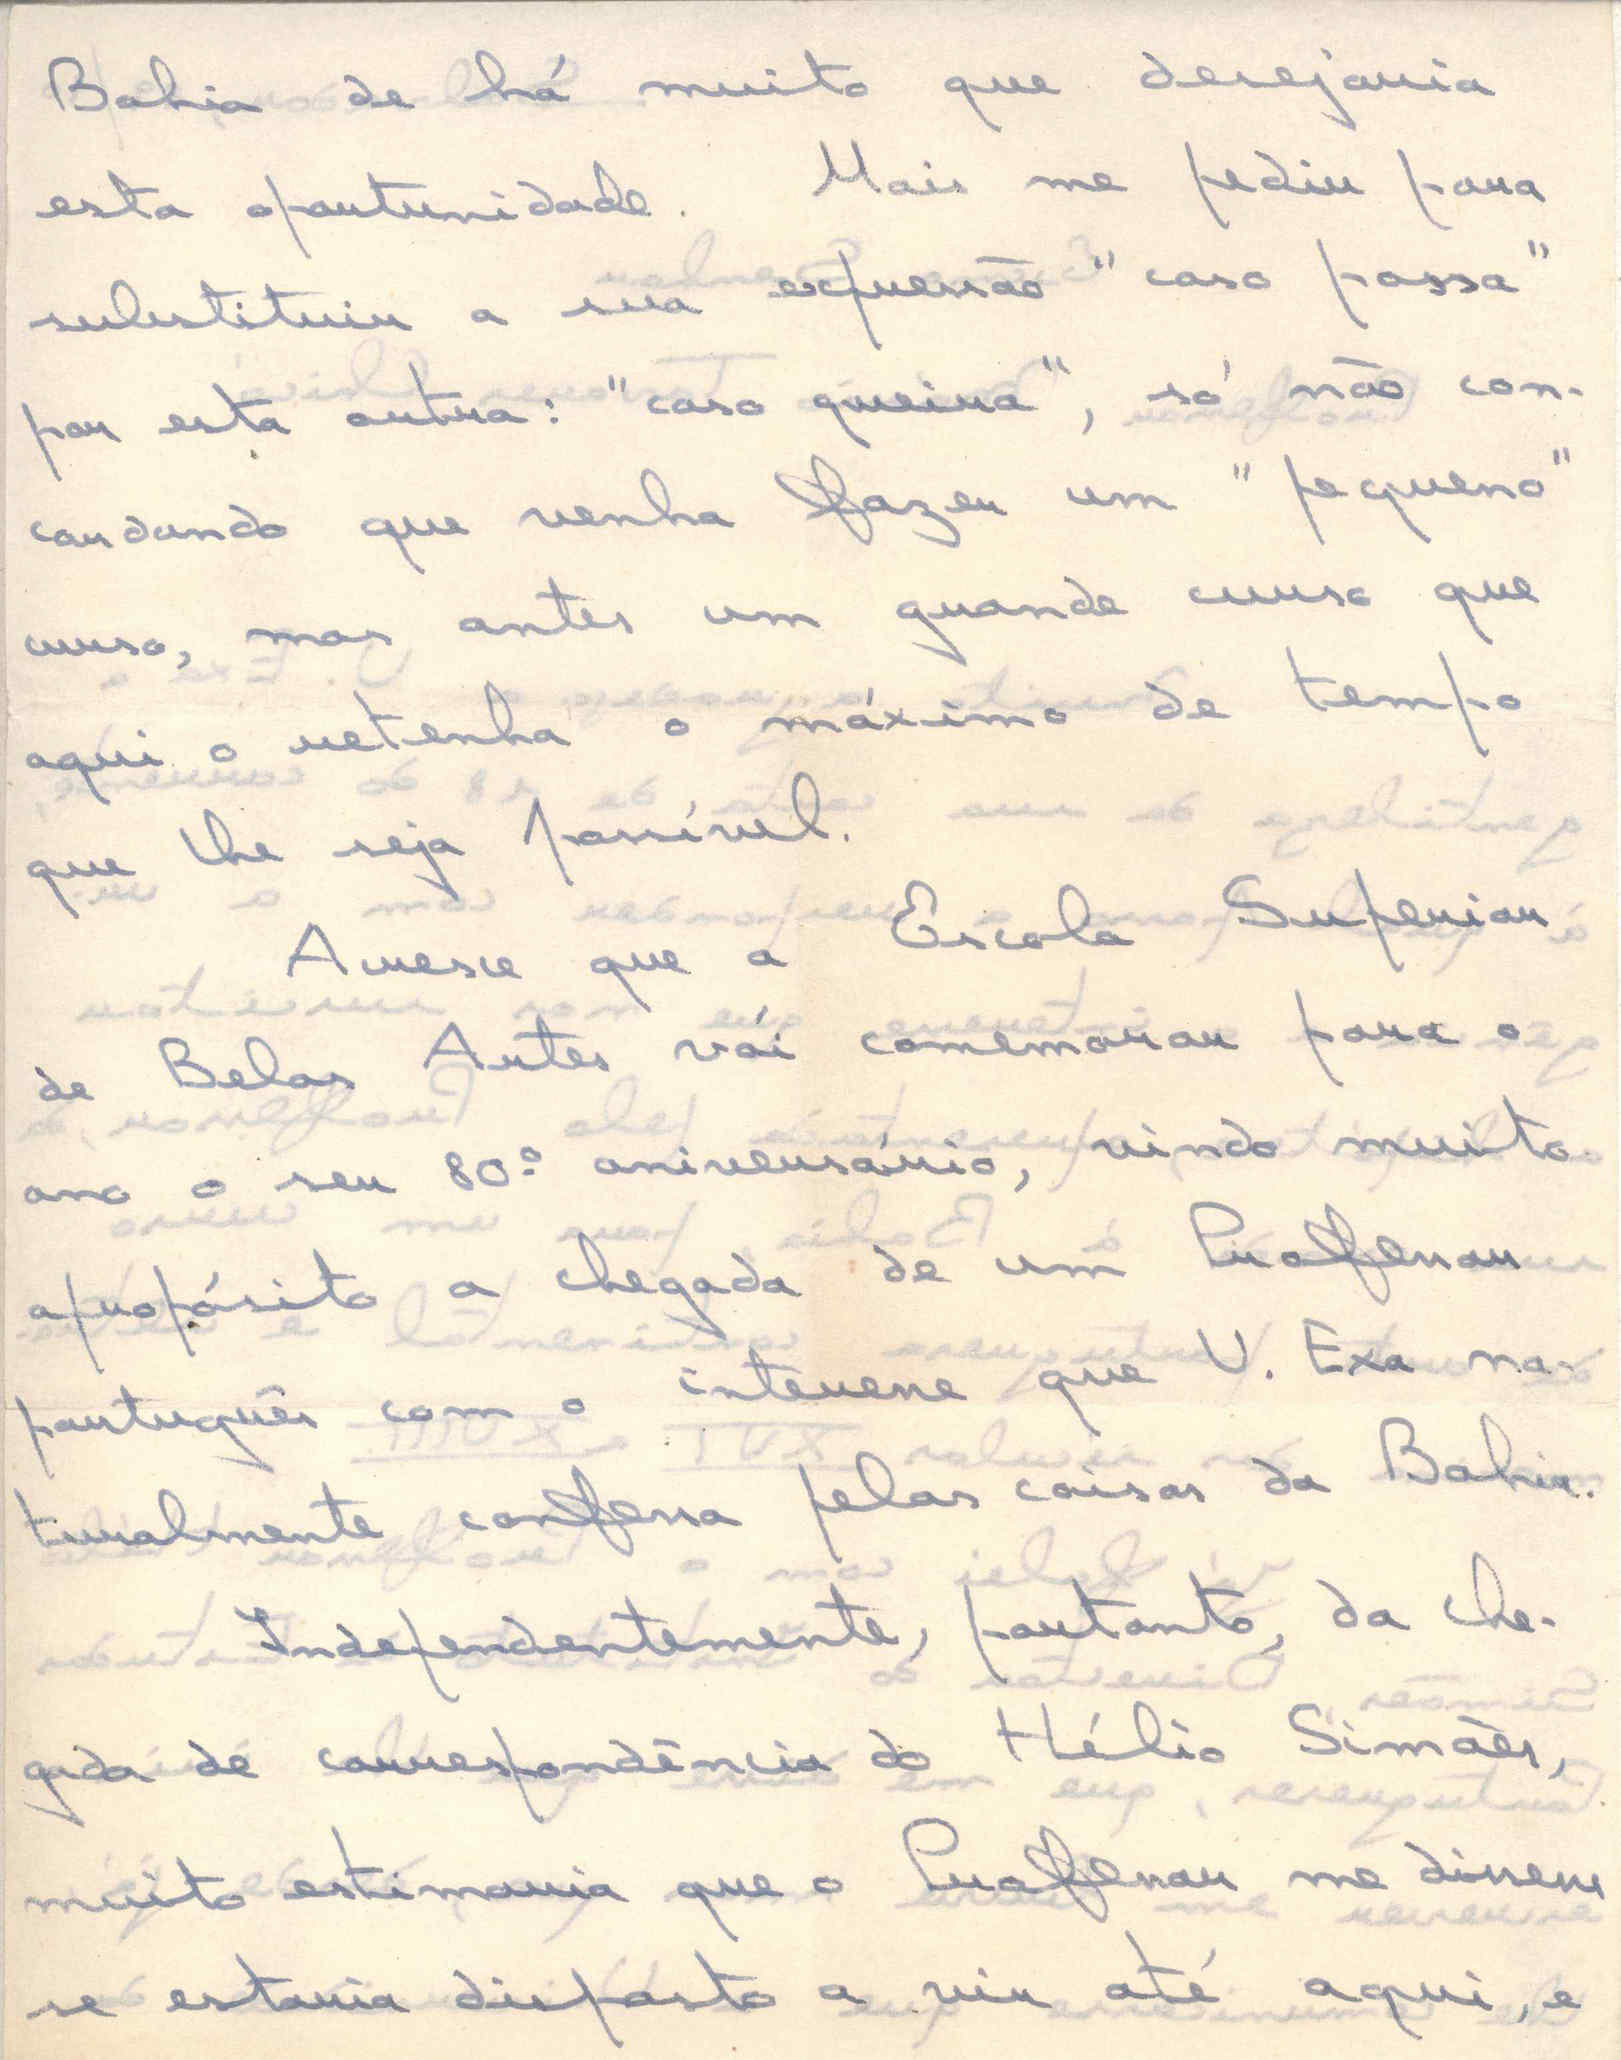 Bahia de há muito que desejaria
esta oportunidade. Mais me pediu para
substituir a sua expressão "caso possa"
por esta outra: "caso queira", só não con-
cordando que venha fazer um "pequeno"
curso, mas antes um grande curso que
aqui o retenha o máximo de tempo
que lhe seja possível.
Acresce que a Escola Superior
de Belas Artes vái comemorar para o
ano o seu 80º aniversário, vindo muito
apropósito a chegada de um Professor
português com o interesse que V. Exa na-
turalmente confessa pelas coisas da Bahia.
Independentemente, portanto, da che-
gada de correspondência do Hélio Simões,
muito estimaria que o Professor me dissesse
se estaria disposto a vir até aqui, e